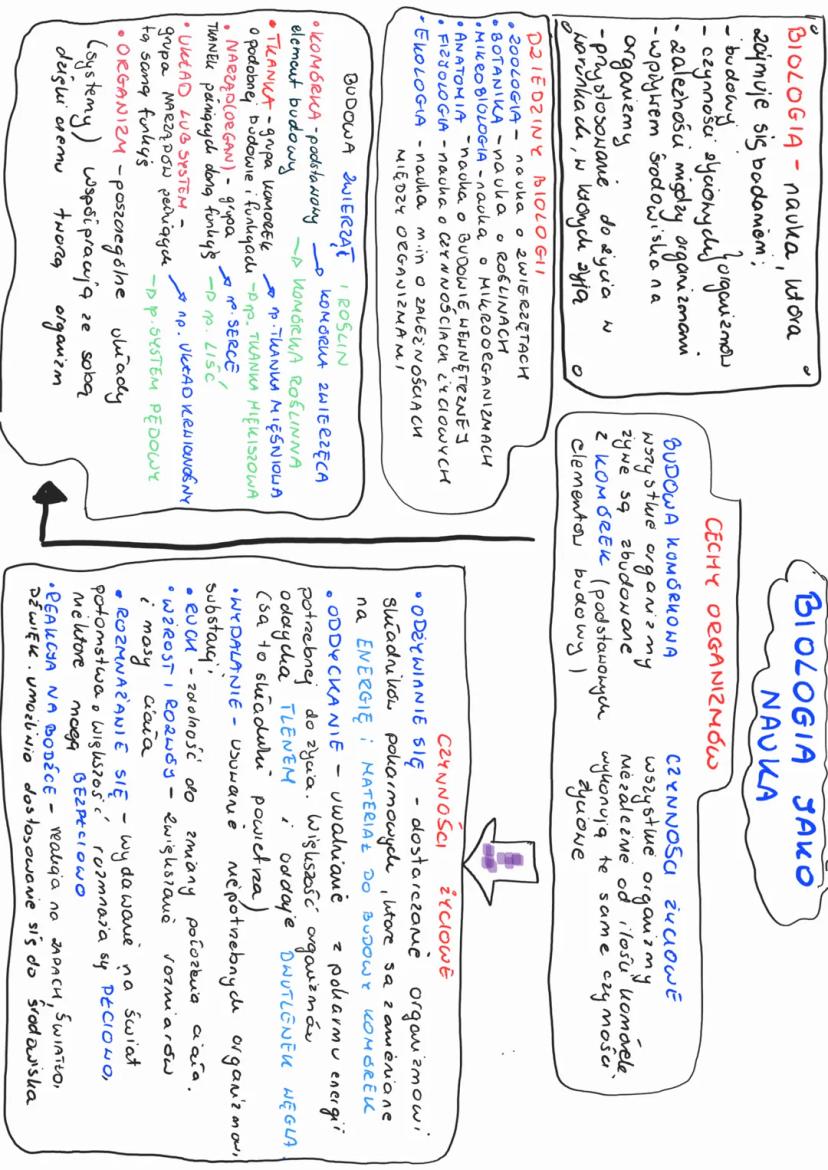 BIOLOGIA JAKO
NAUKA
BIOLOGIA - nauka, która
zajmuje się badaniem:
- budowy
- czynności życionych } organizmów
- zależności między organizmami
- wpływem środowiska na
organizmy
- przystosowanie do życia w
warunkach, w których żyją
DZIEDZINY BIOLOGII
• ZOOLOGIA - nauka o ZWIERZĘTACH
• BOTANIKA - nauka o ROŚLINACH
• MIKROBIOLOGIA - nauka o MIKROORGANIZMACH
• ANATOMIA - nauka o BUDOWIE WEWNĘTRZNEJ
• FIZJOLOGIA - nauka o CZYNNOŚCIACH ŻYCIOWYCH
• EKOLOGIA - nauka m.in o ZALEŻNOŚCIACH
MIĘDZY ORGANIZMAMI
BUDOWA ZWIERZĄT I ROŚLIN
• KOMÓRKA - podstawowy → KOMÓRKA ZWIERZĘCA
element budowy → KOMÓRKA ROŚLINNA
• TKANKA - grupa komórek → np. TKANKA MIĘŚNIOWA
o podobnej budowie i funkcjach → np. TKANKA MIĘKISZOWA
• NARZĄD (ORGAN) - grupa → np. SERCE
tkanek pełniących daną funkcję → np. LIŚĆ
• UKŁAD LUB SYSTEM - → np. UKŁAD KRWIONOŚNY
grupa narządów pełniących
tą samą funkcję → np. SYSTEM PĘDOWY
• ORGANIZM - poszczególne układy
(systemy) współpracują ze sobą
dzięki czemu tworzą organizm
CECHY ORGANIZMÓW
BUDOWA KOMÓRKOWA
wszystkie organizmy
żywe są zbudowane
z KOMÓREK (podstawowych
elementów budowy)
CZYNNOŚCI ŻYCIOWE
wszystkie organizmy
niezależnie od ilości komórek
wykonują te same czynności
życiowe
CZYNNOŚCI ŻYCIOWE
• ODŻYWIANIE SIĘ - dostarczanie organizmowi
składników pokarmowych, które są zamieniane
na ENERGIĘ i MATERIAŁ DO BUDOWY KOMÓREK
• ODDYCHANIE - uwalnianie z pokarmu energii
potrzebnej do życia. Większość organizmów
oddycha TLENEM i oddaje DWUTLENEK WĘGLA.
(są to składniki powietrza)
• WYDALANIE - usuwanie niepotrzebnych organizmowi
substancji
• RUCH - zdolność do zmiany położenia ciała.
• WZROST I ROZWÓJ - zwiększanie rozmiarów
i masy ciała
• ROZMNAŻANIE SIĘ - wydawanie na świat
potomstwa. większość rozmnaża się PŁCIOWO,
niektóre mogą BEZPŁCIOWO
• REAKCJA NA BODŹCE - reakcja na ZAPACH, ŚWIATŁO,
DŹWIĘK. umożliwia dostosowanie się do środowiska